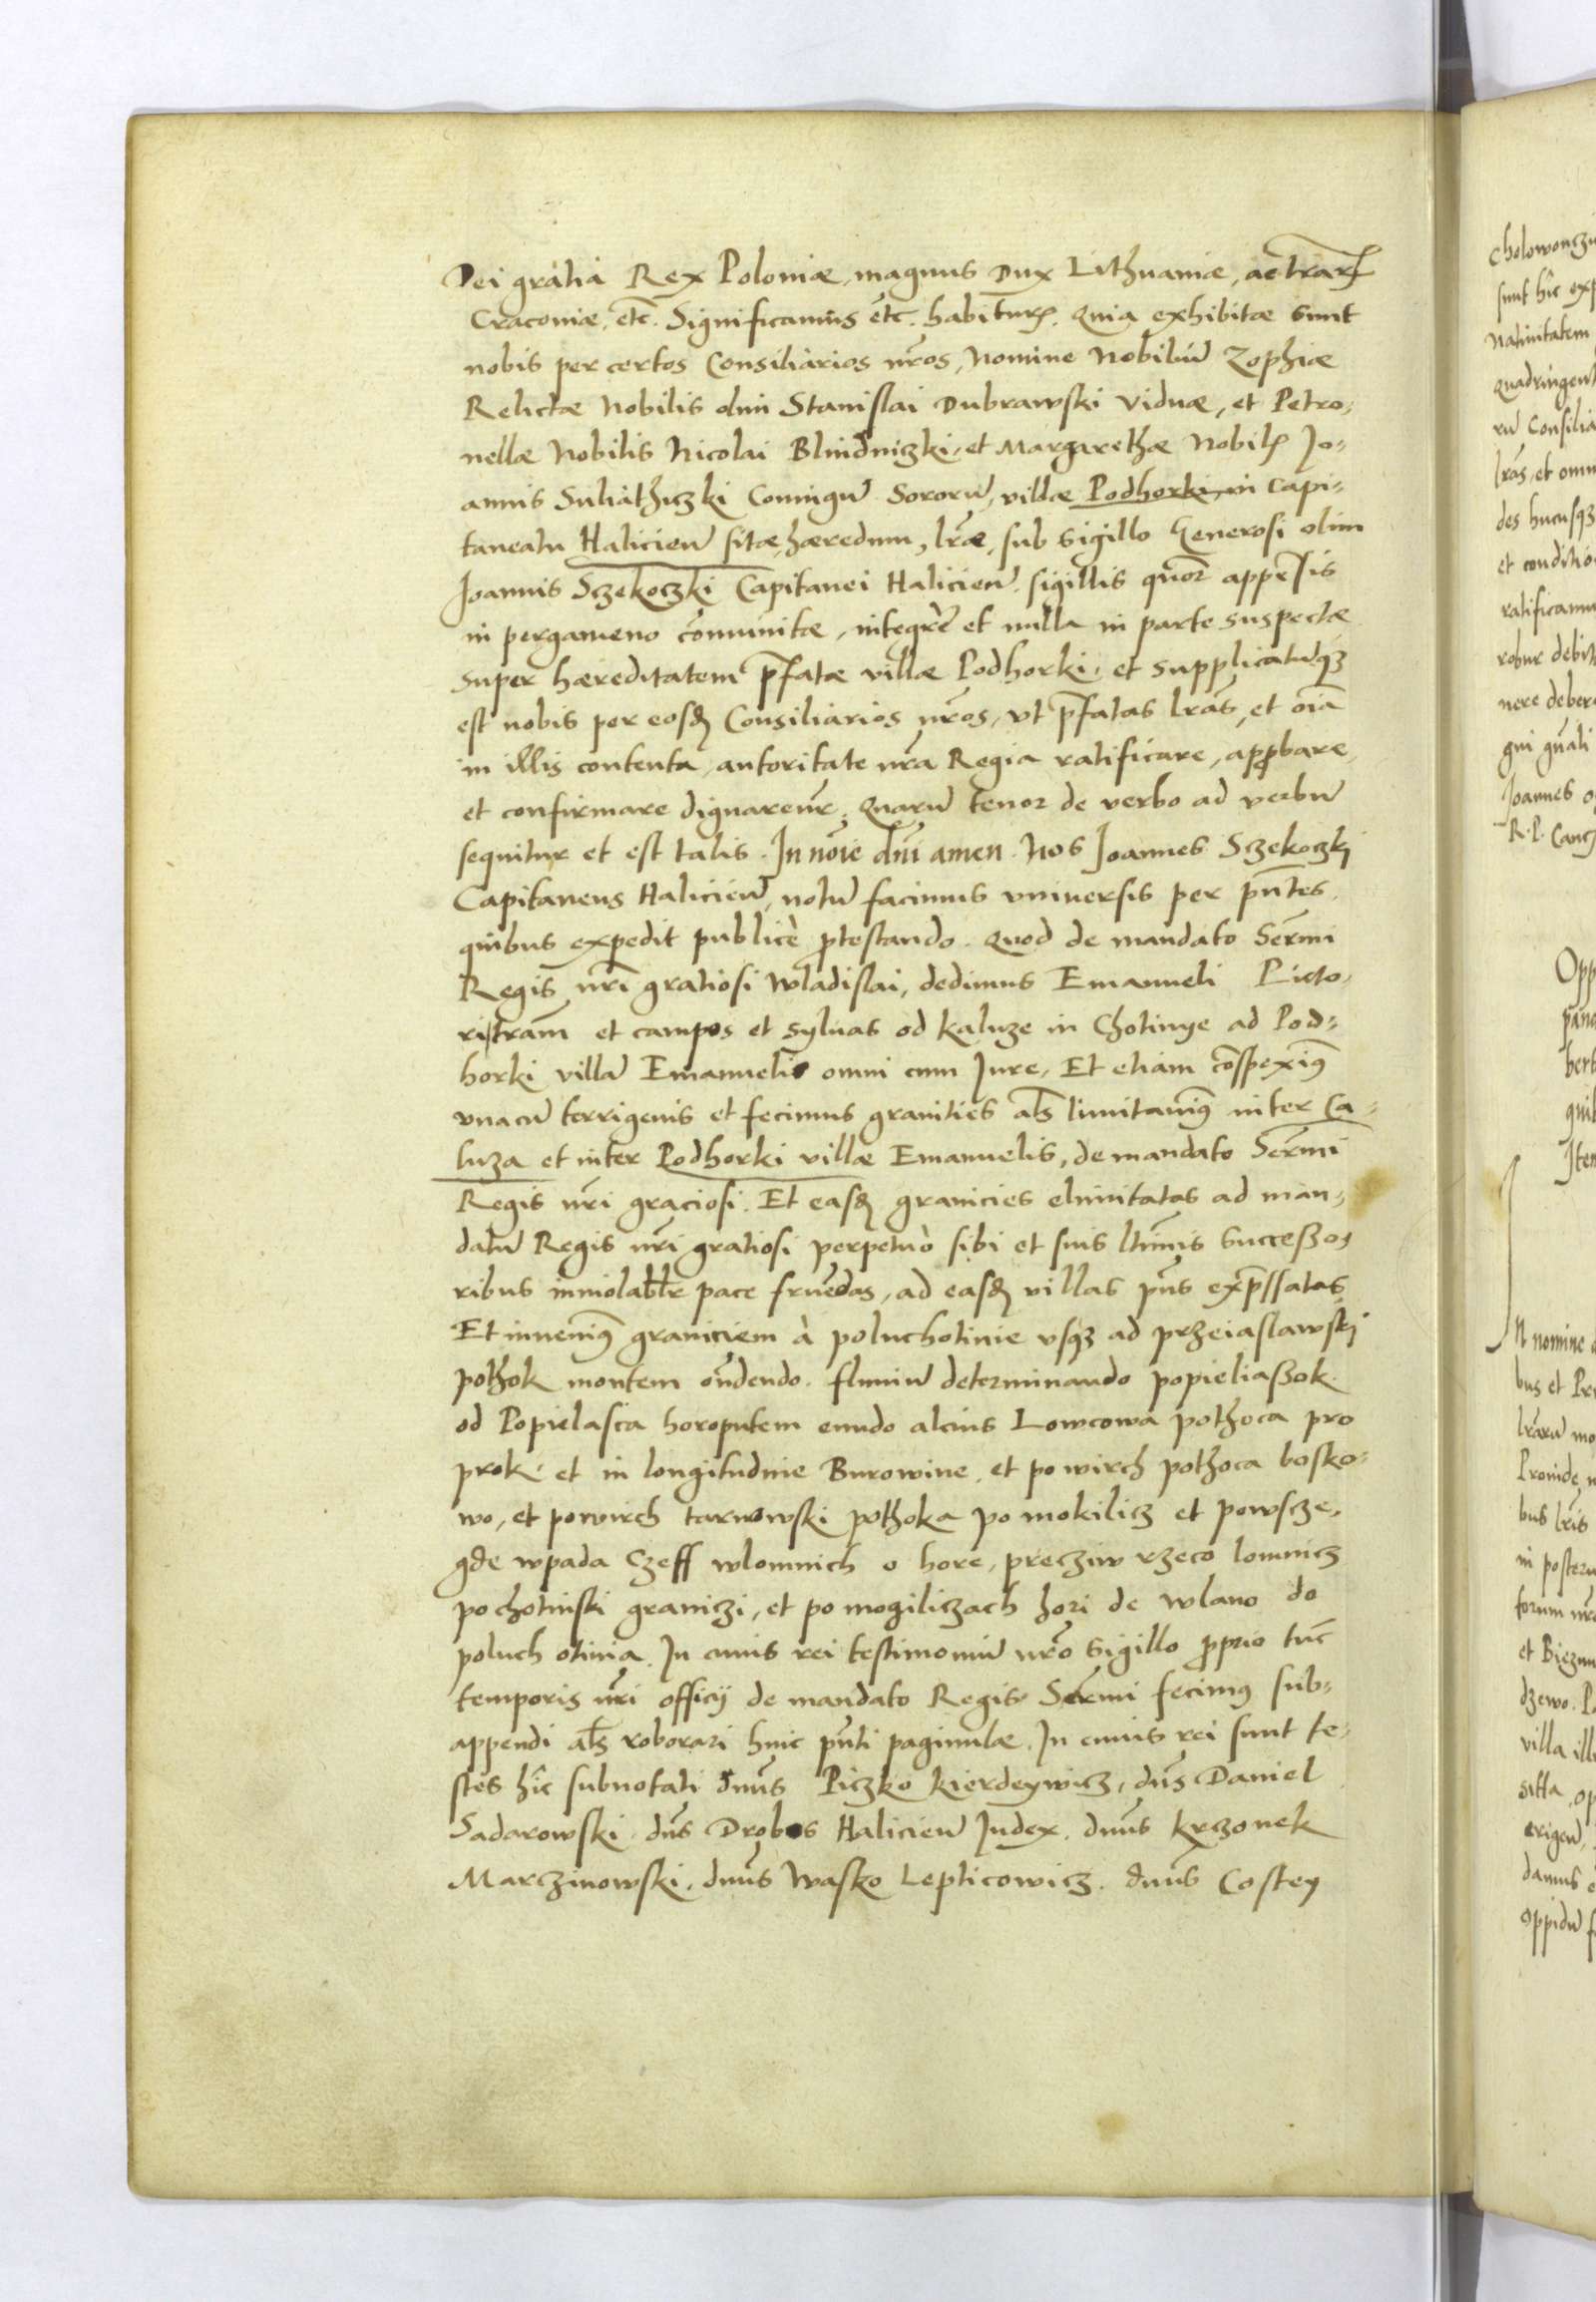 Dei gratia Rex Poloniæ, magnus Dux Lithuaniæ, ac trarꝝ
Craconiæ, etc̃. Significamus etc̃. habiturꝝ. Quia exhibitæ sunt
nobis per certos Consiliarios nr̃os, Nomine Nobiliũ Zophiæ
Relictæ Nobilis olim Stanislai Dubrawski Viduæ, et Petro,
nellæ Nobilis Nicolai Blindniczki, et Margarethæ Nobilꝭ Jo-
annis Suliathiczki Coniugũ Sororũ, villæ Podhorki, in Capi-
taneatu Halicieñ sitæ, hæredum, lr̃æ, sub sigillo Generosi olim
Joannis Sczekoczki Capitanei Halicieñ. sigillis quor̃ appẽsis
in pergameno cõmunitæ, integræ et nulla in parte suspectæ
super hæreditatem p̃fatæ villæ Podhorki, et supplicatũqꝫ
est nobis per eosdꝫ Consiliarios nr̃os, vt p̃fatas lr̃as, et oĩa
in illis contenta, autoritate nr̃a Regia ratificare, approbare,
et confirmare dignaremr̃. Quarũ tenor de verbo ad verbũ
sequitur et est talis. In nõie dñi amen. Nos Joannes Sczekoczki
Capitaneus Halicieñ, notũ facimus vniuersis per pñtes,
quibus expedit publicè protestando. Quod de mandato Serm̃i
Regis nr̃i gratiosi Wladislai, dedimus Emanueli Picto,
ri tram̃ et campos et syluas od Kaluze in Chotinye ad Pod-
horki villã Emanuelis omni cum Jure, Et etiam cõspeximꝰ
vnacũ terrigenis et fecimus granities als̃ limitauimꝰ inter Ca-
luza et inter Podhorki villæ Emanuelis, de mandato Serm̃i
Regis nr̃i graciosi. Et easdꝫ granicies elimitatas ad man-
datũ Regis nr̃i gratiosi perpetuò sibi et suis ltim̃is successo,
ribus inuiolabl̃r pace fruẽdas, ad easdꝫ villas pñs exp̃ssatas
Et inuenimꝰ graniciem à poluchotinie vsqꝫ ad przeiaslawski
pothok montem oñdendo. fluuiũ determinando popieliaszok.
od Popielasca horoputem eundo alcius Lowcowa pothoca pro
prok. et in longitudnie Burowine, et po wirch pothoca bosko-
wo, et powirch tarnowski pothoka po mokilicz et powscze,
gde wpada Czeff wlomnich o hore, preczıw rzeco lomnicz
po chotinski graniczi, et po mogiliczach hori de wlano do
poluch otinia. In cuius rei testimoniũ nr̃o sigillo proprio tũc
temporis nr̃i officij de mandato Regis Serm̃i fecimꝰ sub-
appendi als̃ roborari huic pñti paginulæ. In cuius rei sunt te-
stes hîc subnotati dñus Piczko Kierdeywicz, dñs Daniel
Sadarowski. dñs Drobos Halicieñ Judex. dñus Krczonek
Marczinowski. dñus Wasko Lepticowicz. dñus Costey